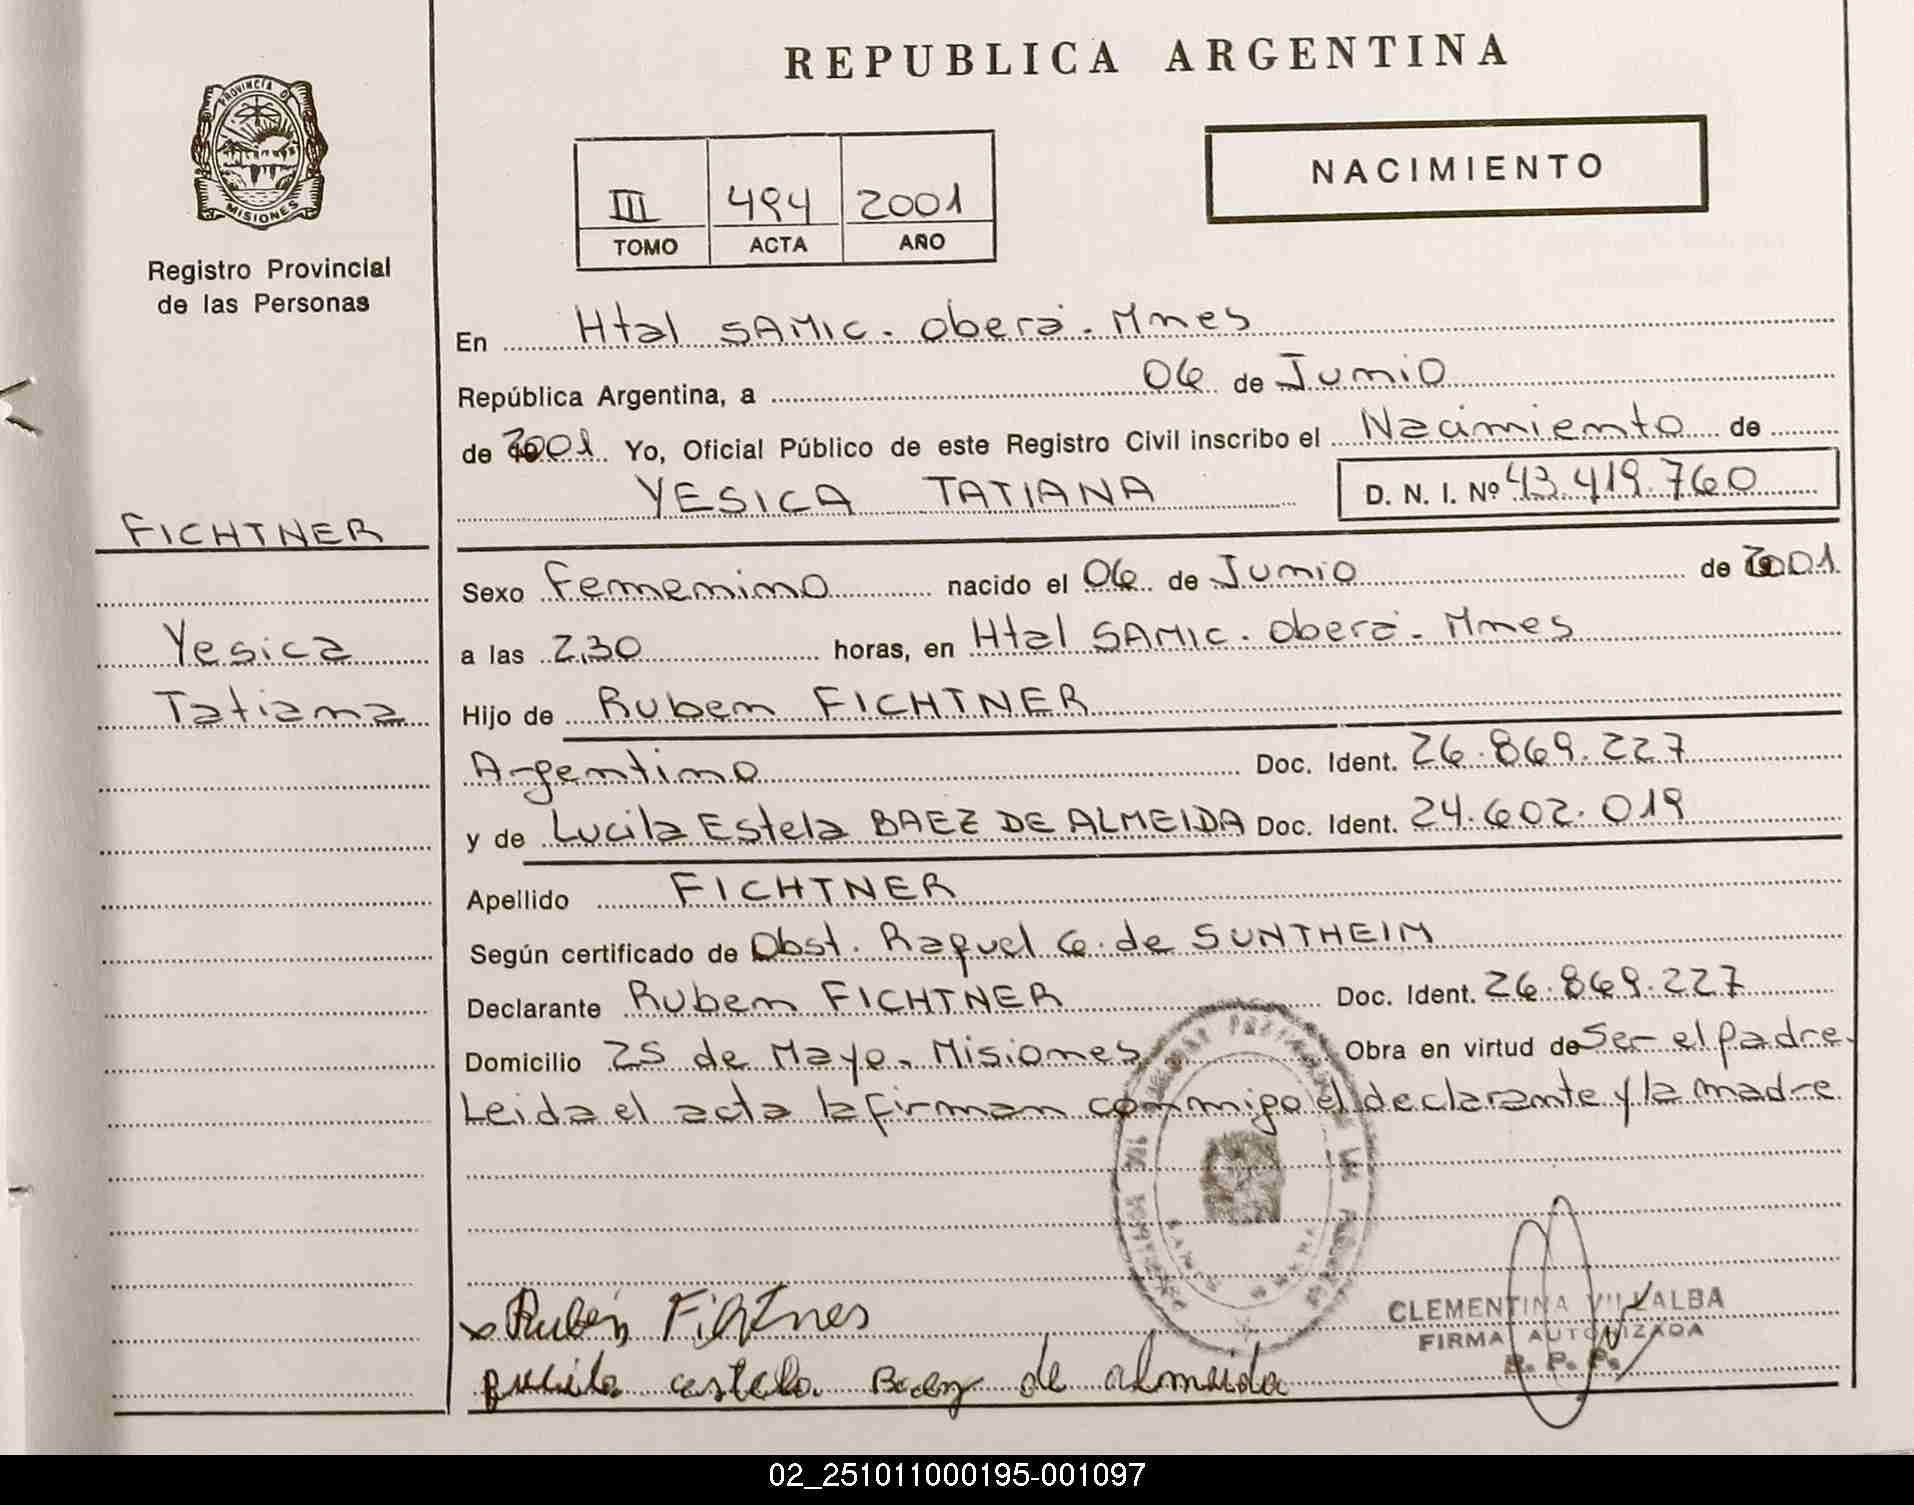 REPUBLICA ARGENTINA
PROVINCIA DE
MISIONES
Registro Provincial
de las Personas
III 494 2001
TOMO ACTA AÑO
NACIMIENTO
En Htal SAMIC. Oberá. Mnes
República Argentina, a 06 de Junio
de 2001 Yo, Oficial Público de este Registro Civil inscribo el Nacimiento de
YESICA TATIANA D. N. I. Nº 43.419.760
FICHTNER
Yesica
Tatiana
Sexo Femenino nacido el 06 de Junio de 2001.
a las 2,30 horas, en Htal SAMIC. Oberá. Mnes
Hijo de Ruben FICHTNER
Argentino Doc. Ident. 26.869.227
y de Lucila Estela BAEZ DE ALMEIDA Doc. Ident. 24.602.019
Apellido FICHTNER
Según certificado de Obst. Raquel G. de SUNTHEIM
Declarante Ruben FICHTNER Doc. Ident. 26.869.227
Domicilio 25 de Mayo. Misiones Obra en virtud de Ser el padre.
Leida el acta la firman conmigo el declarante y la madre
Rubén Fichtner
CLEMENTINA VILLALBA
FIRMA AUTORIZADA
R. P. P.
Lucila estela Baez de almeida
02_251011000195-001097